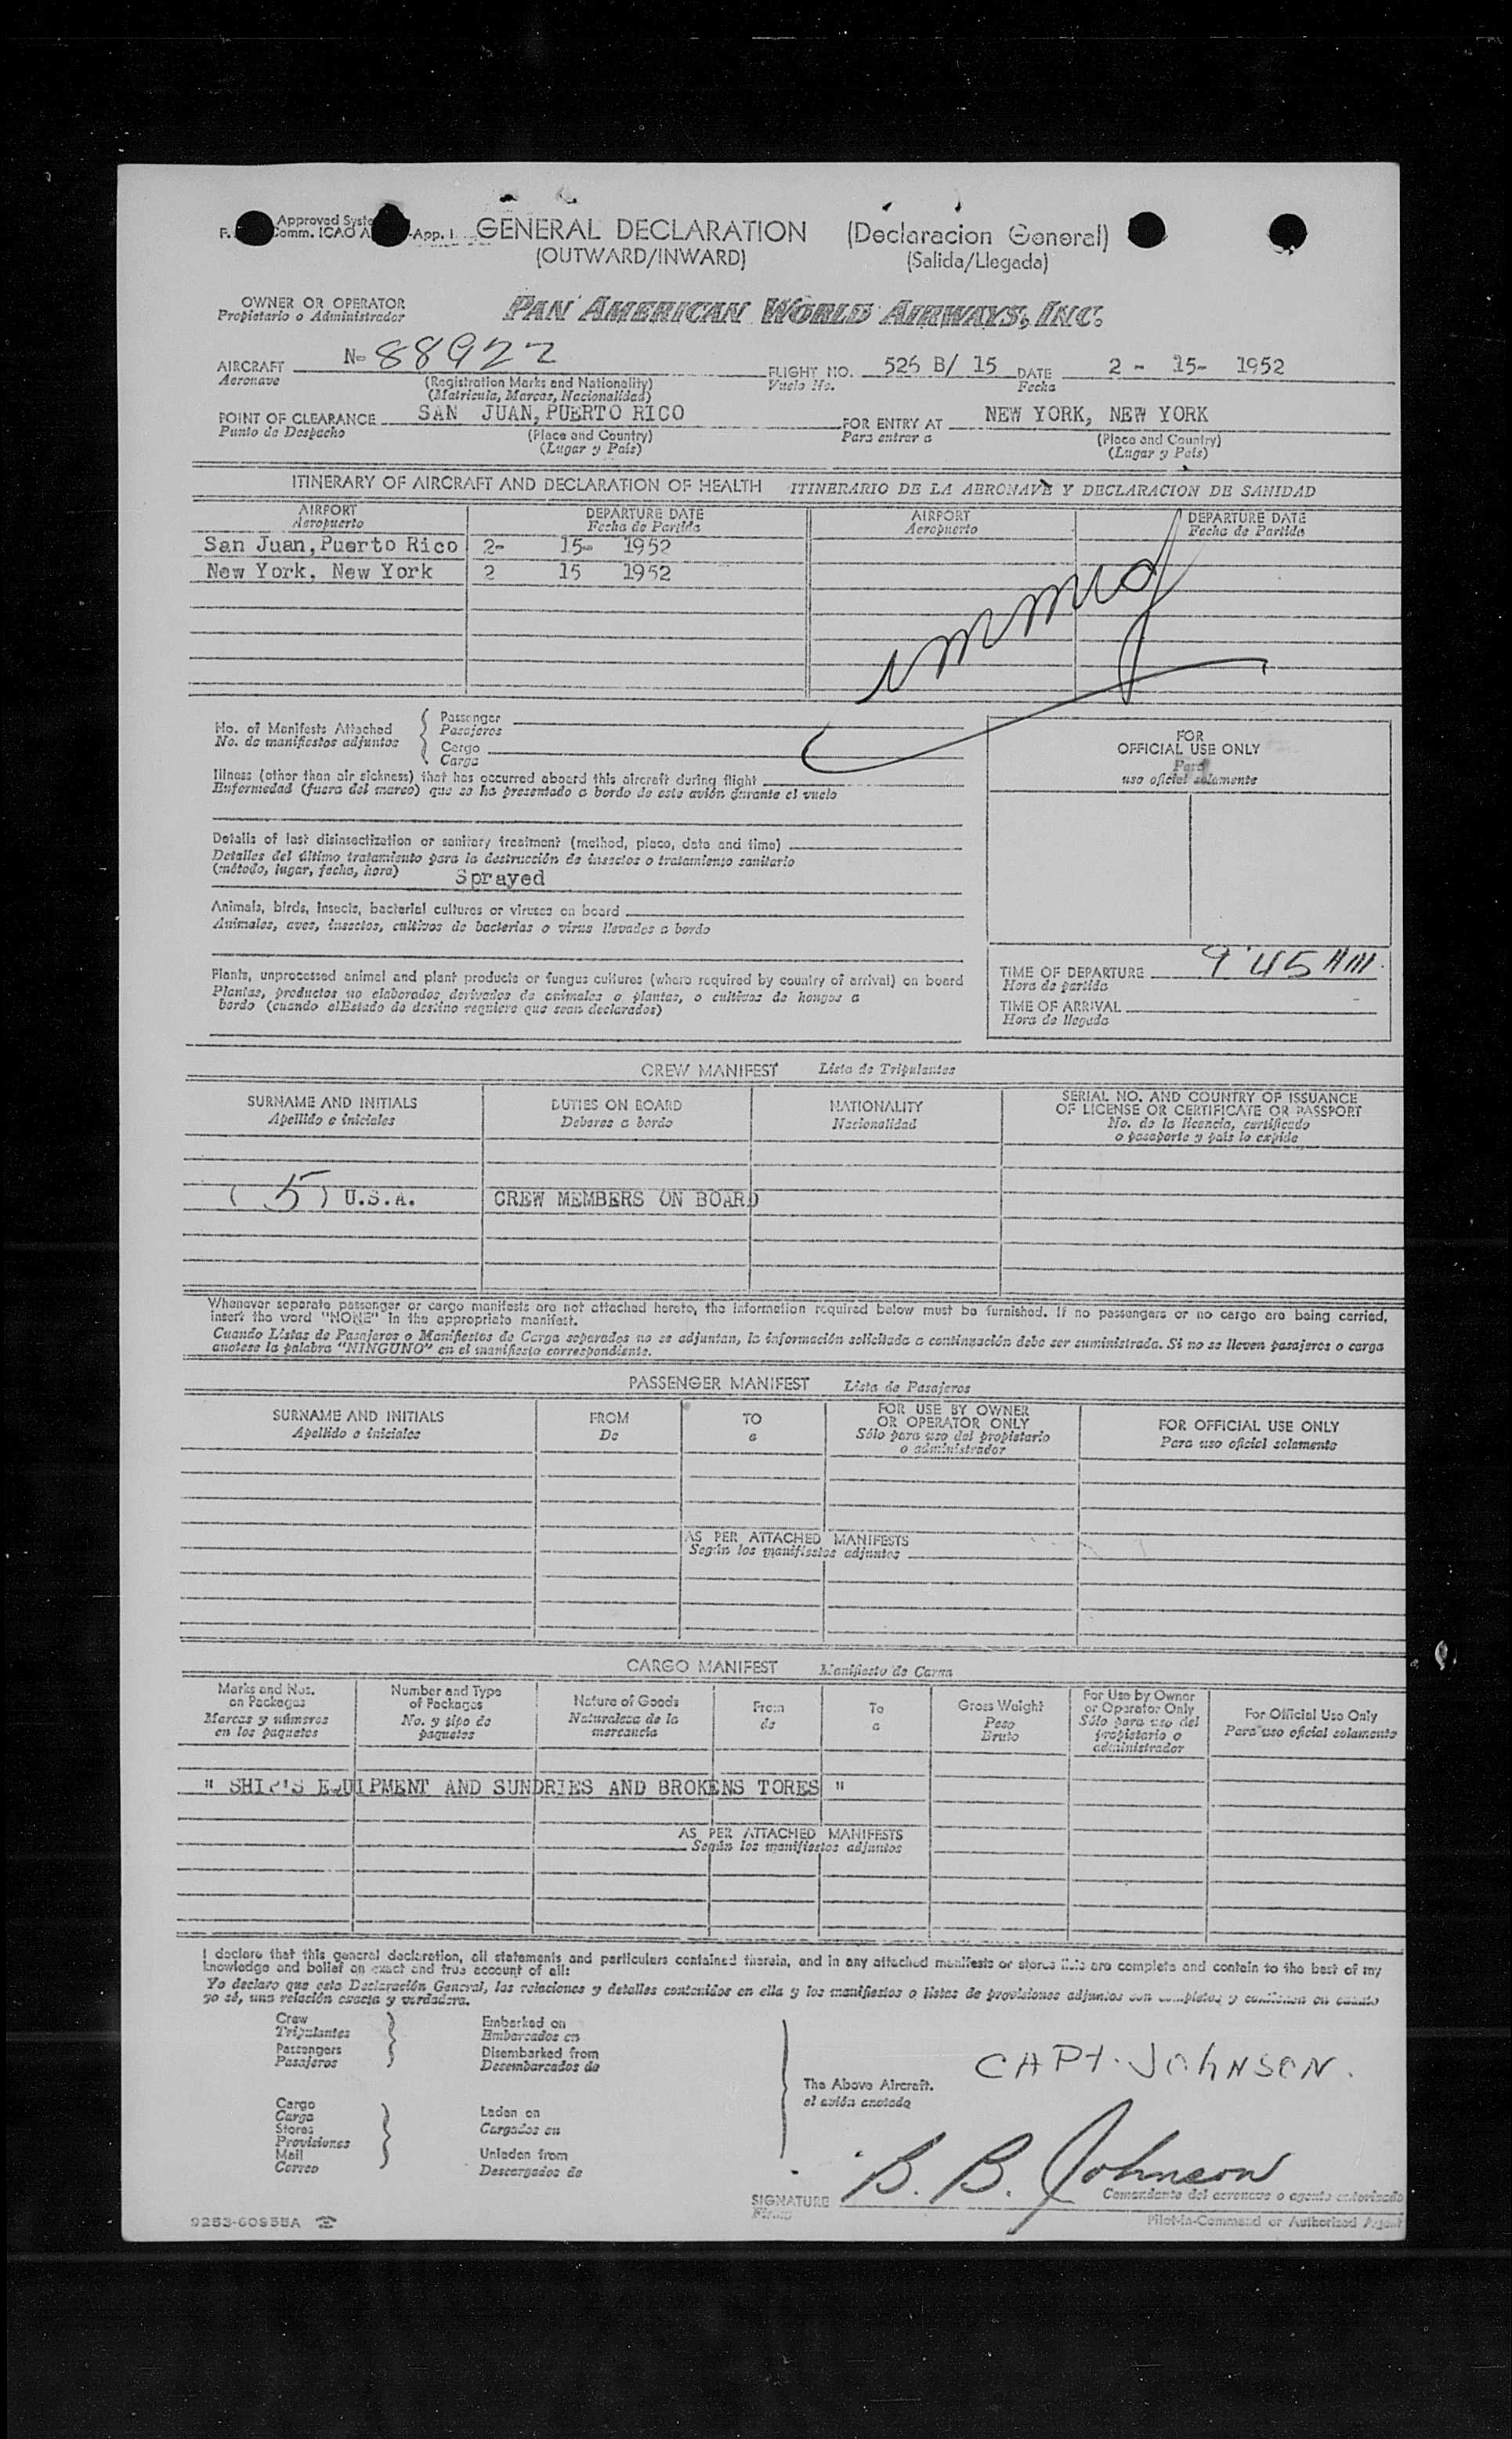 Approved Syste
F. Comm. ICAO A -App. I.
GENERAL DECLARATION (Declaracion General)
(OUTWARD/INWARD) (Salida/Llegada)
OWNER OR OPERATOR
Propietario o Administrador
PAN AMERICAN WORLD AIRWAYS, INC.
AIRCRAFT N- 88922 FLIGHT NO. 526 B/ 15 DATE 2 - 15- 1952
Aeronave (Registration Marks and Nationality) Vuelo No. Fecha
(Matricula, Marcas, Nacionalidad)
POINT OF CLEARANCE SAN JUAN, PUERTO RICO FOR ENTRY AT NEW YORK, NEW YORK
Punto de Despacho (Place and Country) Para entrar a (Place and Country)
(Lugar y País) (Lugar y País)
ITINERARY OF AIRCRAFT AND DECLARATION OF HEALTH ITINERARIO DE LA AERONAVE Y DECLARACION DE SANIDAD
AIRPORT DEPARTURE DATE AIRPORT DEPARTURE DATE
Aeropuerto Fecha de Partida Aeropuerto Fecha de Partida
San Juan, Puerto Rico 2- 15- 1952
New York, New York 2 15 1952
No. of Manifests Attached
No. de manifiestos adjuntos
Passenger
Pasajeros
Cargo
Carga
FOR
OFFICIAL USE ONLY
Para
uso oficial solamente
Illness (other than air sickness) that has occurred aboard this aircraft during flight
Enfermedad (fuera del mareo) que se ha presentado a bordo de este avión durante el vuelo
Details of last disinsectization or sanitary treatment (method, place, date and time)
Detalles del último tratamiento para la destrucción de insectos o tratamiento sanitario
(método, lugar, fecha, hora) Sprayed
Animals, birds, insects, bacterial cultures or viruses on board
Animales, aves, insectos, cultivos de bacterias o virus llevados a bordo
Plants, unprocessed animal and plant products or fungus cultures (where required by country of arrival) on board
Plantas, productos no elaborados derivados de animales o plantas, o cultivos de hongos a
bordo (cuando elEstado de destino requiere que sean declarados)
TIME OF DEPARTURE 9 45 AM.
Hora de partida
TIME OF ARRIVAL
Hora de llegada
CREW MANIFEST Lista de Tripulantes
SURNAME AND INITIALS DUTIES ON BOARD NATIONALITY SERIAL NO. AND COUNTRY OF ISSUANCE
OF LICENSE OR CERTIFICATE OR PASSPORT
Apellido e iniciales Deberes a bordo Nacionalidad No. de la licencia, certificado
o pasaporte y país lo expide
( 5 ) U.S.A. CREW MEMBERS ON BOARD
Whenever separate passenger or cargo manifests are not attached hereto, the information required below must be furnished. If no passengers or no cargo are being carried,
insert the word "NONE" in the appropriate manifest.
Cuando Listas de Pasajeros o Manifiestos de Carga separados no se adjuntan, la información solicitada a continuación debe ser suministrada. Si no se lleven pasajeros o carga
anotese la palabra "NINGUNO" en el manifiesto correspondiente.
PASSENGER MANIFEST Lista de Pasajeros
SURNAME AND INITIALS FROM TO FOR USE BY OWNER
OR OPERATOR ONLY FOR OFFICIAL USE ONLY
Apellido e iniciales De a Sólo para uso del propietario
o administrador Para uso oficial solamente
AS PER ATTACHED MANIFESTS
Según los manifiestos adjuntos
CARGO MANIFEST Manifiesto de Carga
Marks and Nos.
on Packages
Marcas y números
en los paquetes
Number and Type
of Packages
No. y tipo de
paquetes
Nature of Goods
Naturaleza de la
mercancia
From
de
To
a
Gross Weight
Peso
Bruto
For Use by Owner
or Operator Only
Sólo para uso del
propietario o
administrador
For Official Use Only
Para uso oficial solamente
" SHIP'S EQUIPMENT AND SUNDRIES AND BROKENS TORES "
AS PER ATTACHED MANIFESTS
Según los manifiestos adjuntos
I declare that this general declaration, all statements and particulars contained therein, and in any attached manifests or stores lists are complete and contain to the best of my
knowledge and belief an exact and true account of all:
Yo declaro que esta Declaración General, las relaciones y detalles contenidos en ella y los manifiestos o listas de provisiones adjuntos son completos y contienen en cuanto
yo sé, una relación exacta y verdadera.
Crew
Tripulantes
Passengers
Pasajeros
Embarked on
Embarcados en
Disembarked from
Desembarcados de
Cargo
Carga
Stores
Provisiones
Mail
Correo
Laden on
Cargados en
Unladen from
Descargados de
The Above Aircraft.
el avión anotado
CAPT. JOHNSON.
SIGNATURE B. B. Johnson
Firma
Comandante del aeronave o agente autorizado
Pilot-in-Command or Authorized Agent
9253-60955A